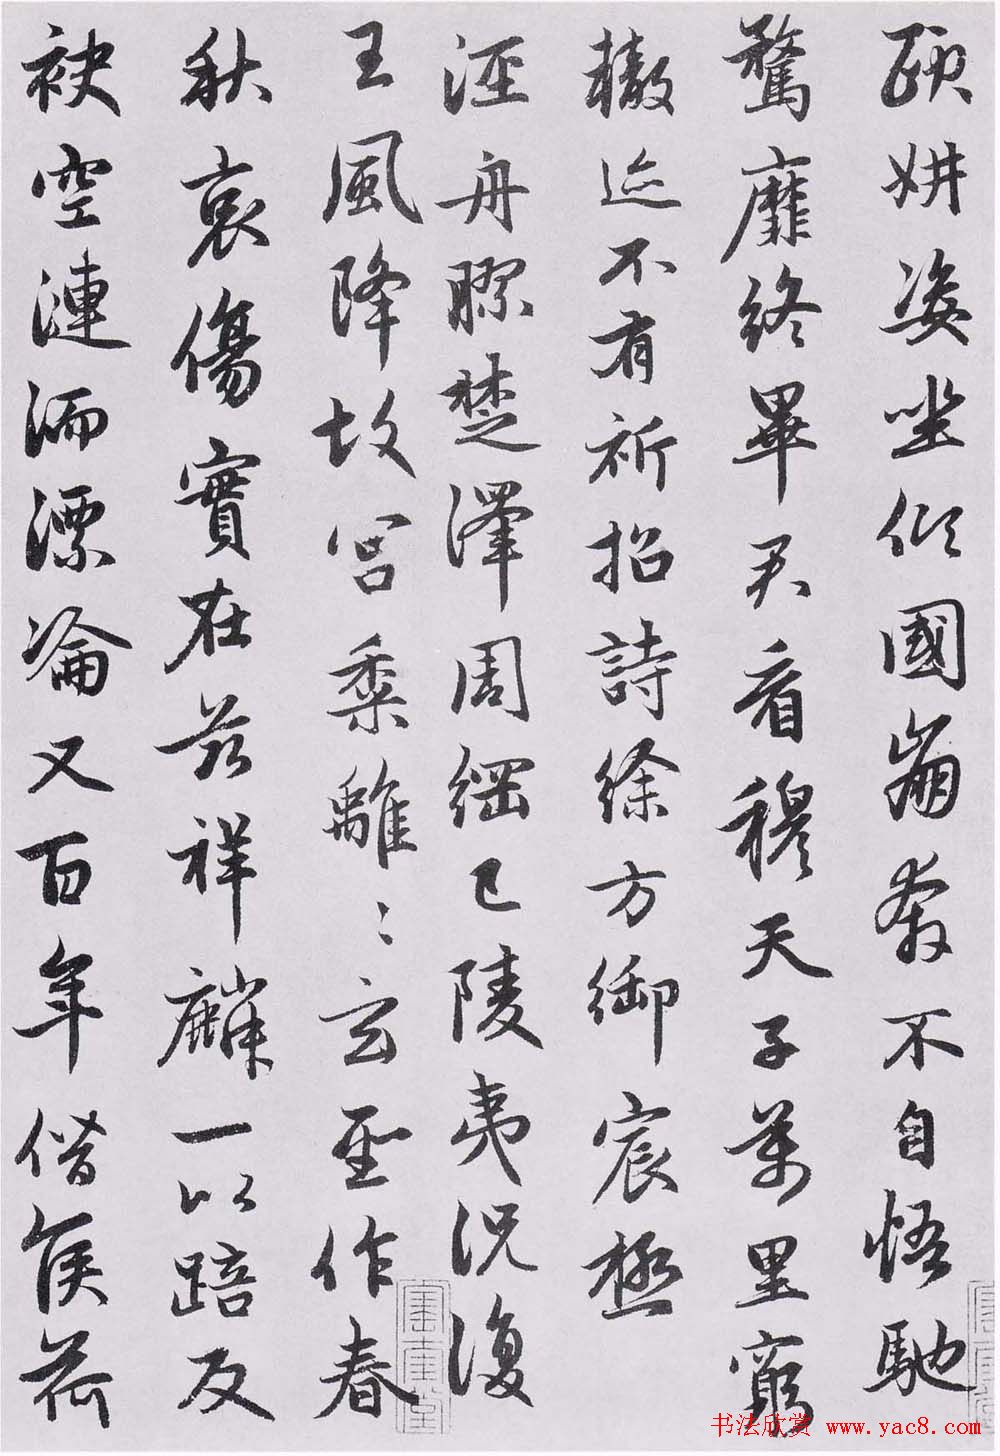 頤妍姿坐傾國崩奔不自悟馳
騖靡終畢君看穆天子萬里窮
轍迹不有祈招詩徐方御宸極
涇舟膠楚澤周綱已陵夷況復
王風降故宮黍離〻玄聖作春
秋哀傷實在茲祥麟一以踣反
袂空漣洏漂淪又百年僭侯荷
书法欣赏 www.yac8.com